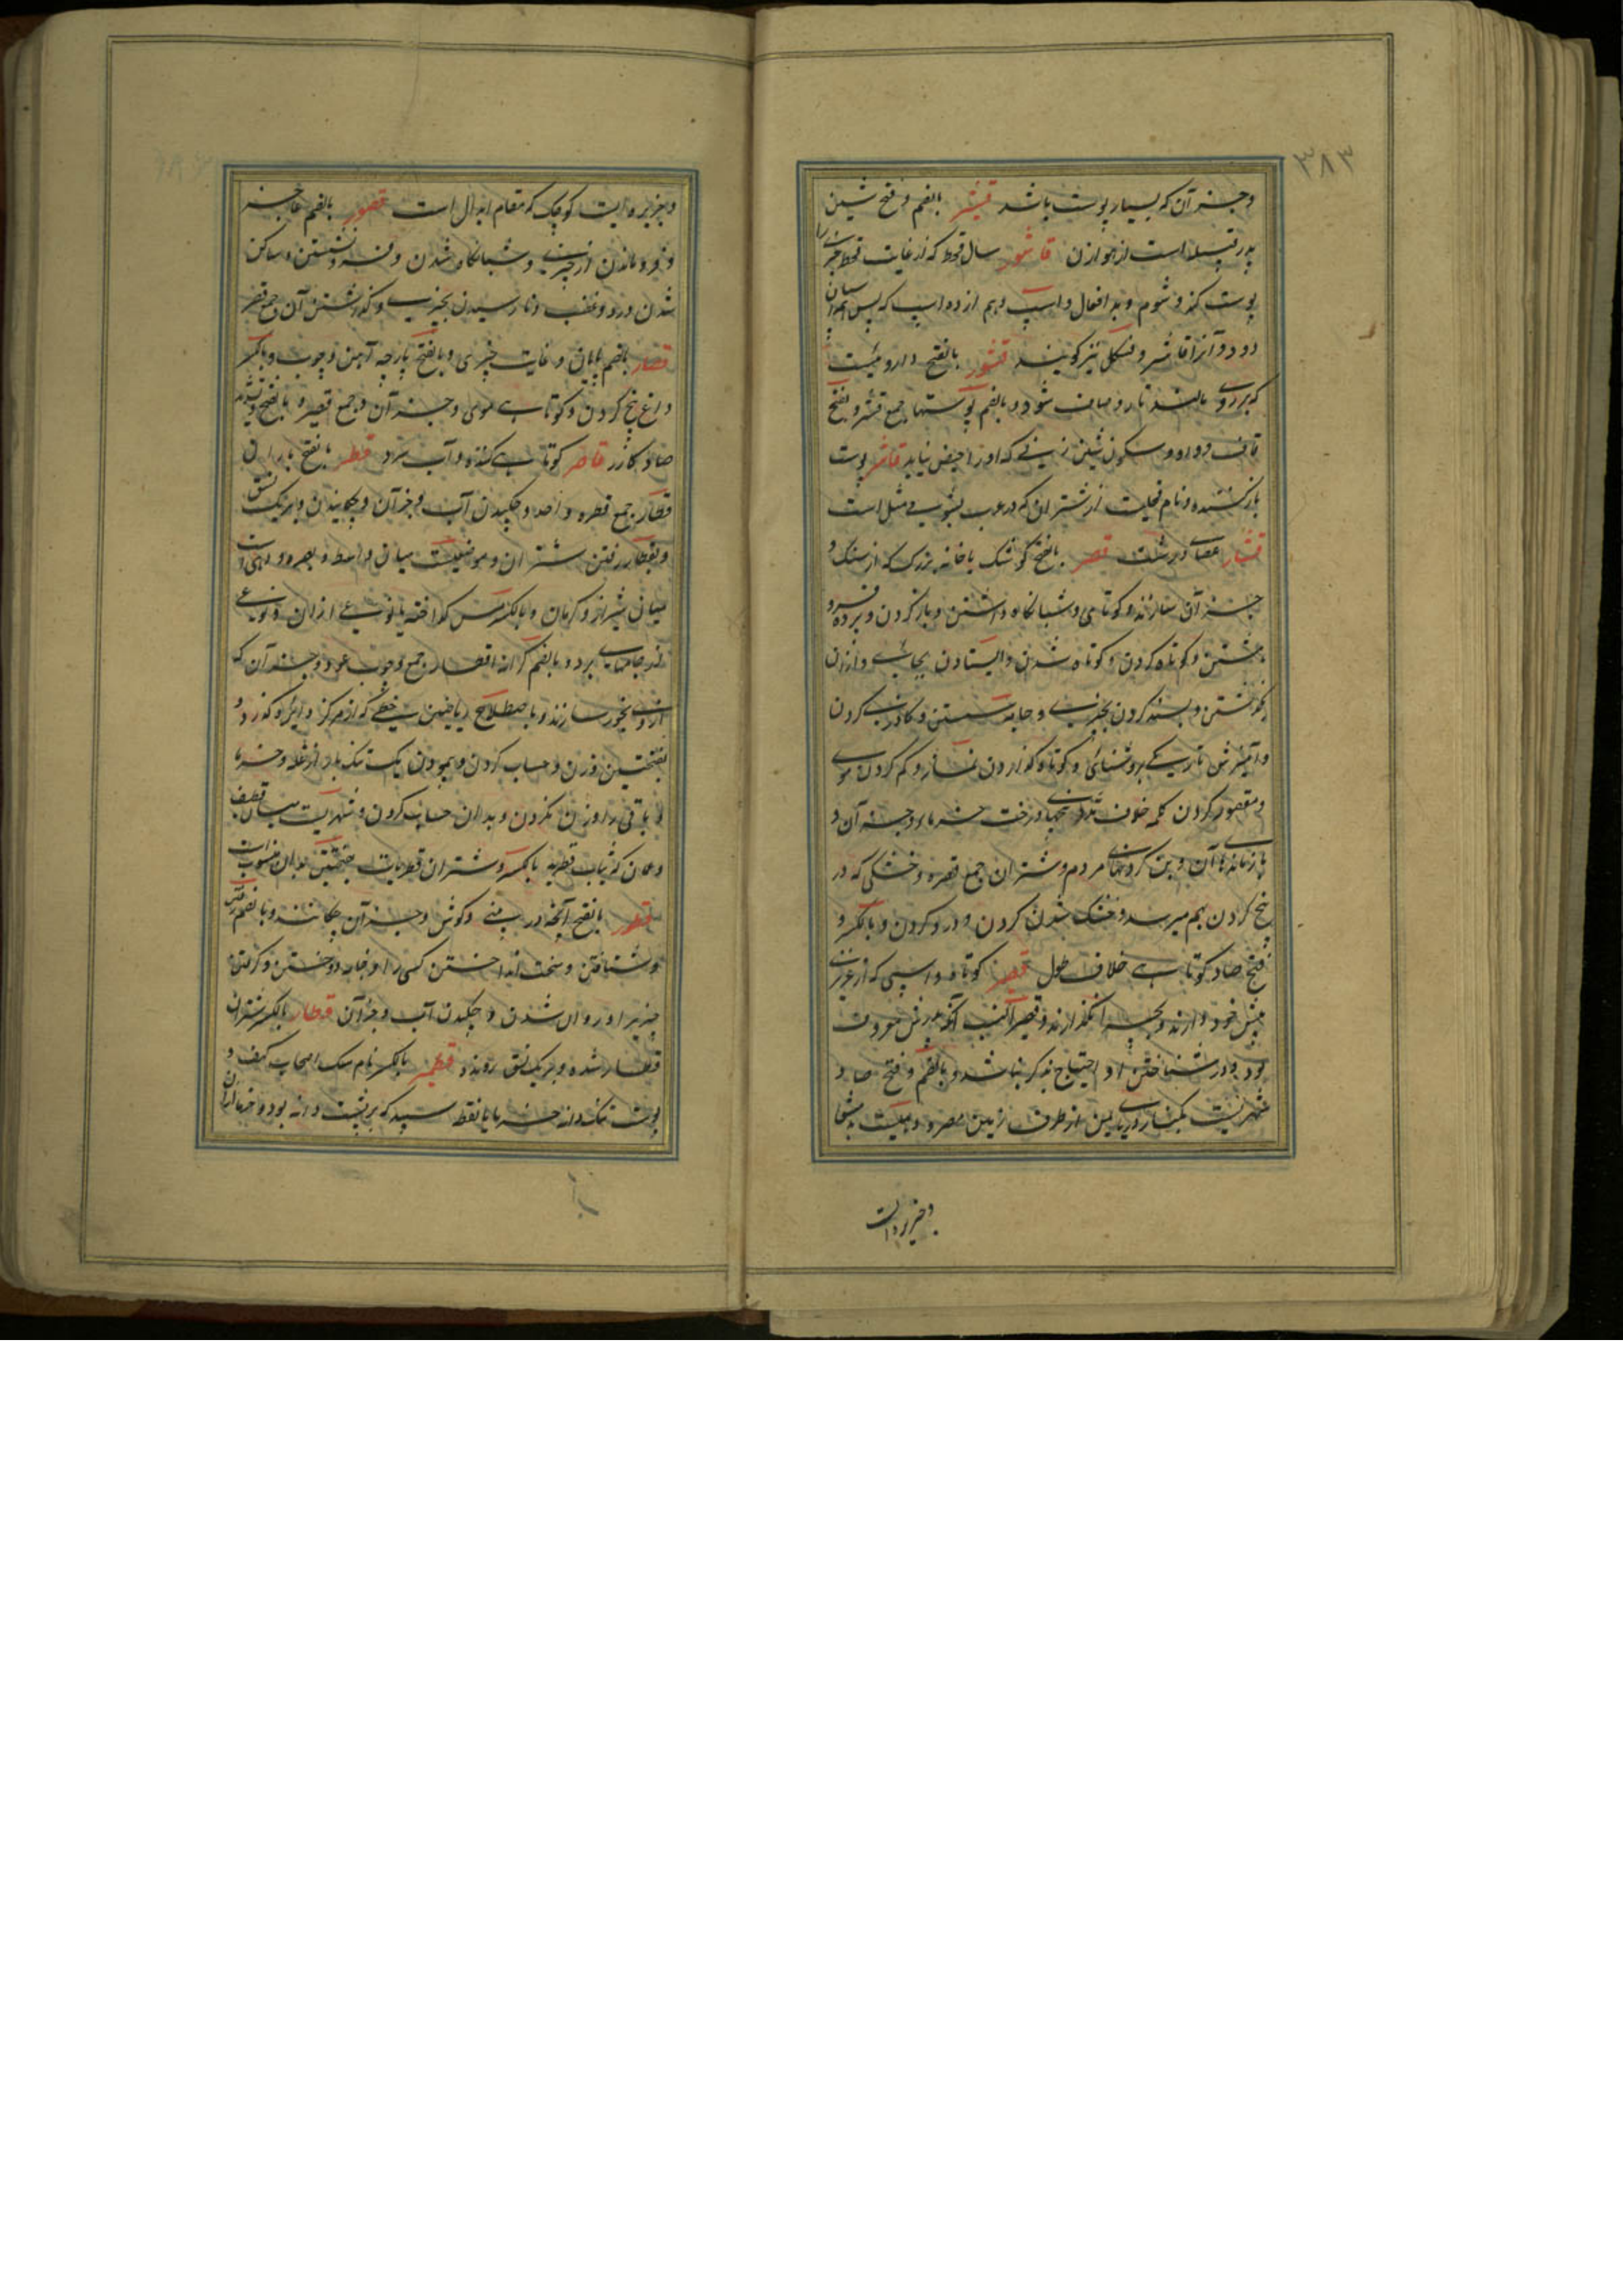 ۳۸۳
وجز آن که بسیار پوست باشد قشیر بالضم و فتح شین
پدر قبیله است از هوازن قاشور سال قحط که از غایت قحط
پوست کند و شوم و بد افعال و اسپ دهم از ده اسپ که پس
دود و آنرا قاشر و فسکل نیز گویند قشور بالفتح داروئیست
که بر روی مالند تا رو صاف شود و بالضم پوستها جمع قشر و بفتح
قاف و واو و سکون شین زنی که او را حیض نیاید قاشر پوست
باز کننده و نام فحلیست از شتران که در عرب بشومی مثل است
قشار عصای درشت قصر بالفتح کوشک یا خانه بزرگ که از سنگ و
جز آن سازند و کوتاهی و شبانگاه و داشتن و باز کردن و پرده فرو
هشتن و کوتاه کردن و کوتاه شدن و ایستادن بجائی و از آن
نگذشتن و بسند کردن بچیزی و جامه شستن و گازری کردن
و آمیزش تاریکی بروشنائی و کوتاه گذاردن نماز و کم کردن موی
و مقصور کردن کلمه خلاف مد و بیخهای درخت خرما و جز آن و
باز مانده آن و بن گردنهای مردم و شتران جمع قصره و خشکی که در
بیخ گردن بهم میرسد و خشک شدن گردن و درد گردن و بالکسر و
فتح صاد کوتاهی خلاف طول قصیر کوتاه و اسپی که از عزیزی
پیش خود دارند و بچرا نگذارند و قصیر النسب آنکه پدرش معروف
بود و در شناختن او احتیاج بذکر نباشد و بالضم و فتح صاد
شهریست بکنار دریای یمن از طرف زمین مصر و دهیست بدمشق
وجزیره ایست
وجزیره ایست کوچک که مقام ابدال است قصور بالضم عاجز
و فرو ماندن از چیزی و شبانگاه شدن و فرو نشستن و ساکن
شدن درد و غضب و نارسیدن بچیزی و گذشتن آن و جمع قصر
قصار بالضم پایان و غایت چیزی و بالفتح پارچه آهن و چوب و بالکسر
داغ بیخ گردن و کوتاهی موی و جز آن و جمع قصیر و بالفتح و تشدید
صاد گازر قاصر کوتاهی کننده و آب سرد قطر بالفتح باران
قطار جمع قطره واحد و چکیدن آب و جز آن و چکانیدن و بر یک نسق
و بقطار رفتن شتران و موضعیست میان واسط و بصره و دهیست
میان شیراز و کرمان و بالکسر مس گداخته یا نوعی از آن و نوعی
از جامهای برد و بالضم کرانه اقطار جمع و چوب عود و جز آن که
از وی بخور سازند و باصطلاح ریاضیین خطی که از مرکز دایره گذرد و
بفتحتین وزن و حساب کردن و پیمودن یک تنگ بار از غله و خرما
و باقی را وزن نکردن و بدان حساب کردن و شهریست میان قطیف
و عمان که ثیاب قطریه بالکسر و شتران قطریات بفتحتین بدان منسوب است
قطور بالفتح آنچه در بینی و گوش و جز آن چکانند و بالضم رفتن
و شتافتن و سخت انداختن کسی را و جامه دوختن و گرفتن
چیزیرا و روان شدن و چکیدن آب و جز آن قطار بالکسر شتران
قطار شده و بر یک نسق رونده قطمیر بالکسر نام سگ اصحاب کهف و
پوست تنک دانه خرما یا نقطه سپید که بر پشت دانه بود و خرما از آن